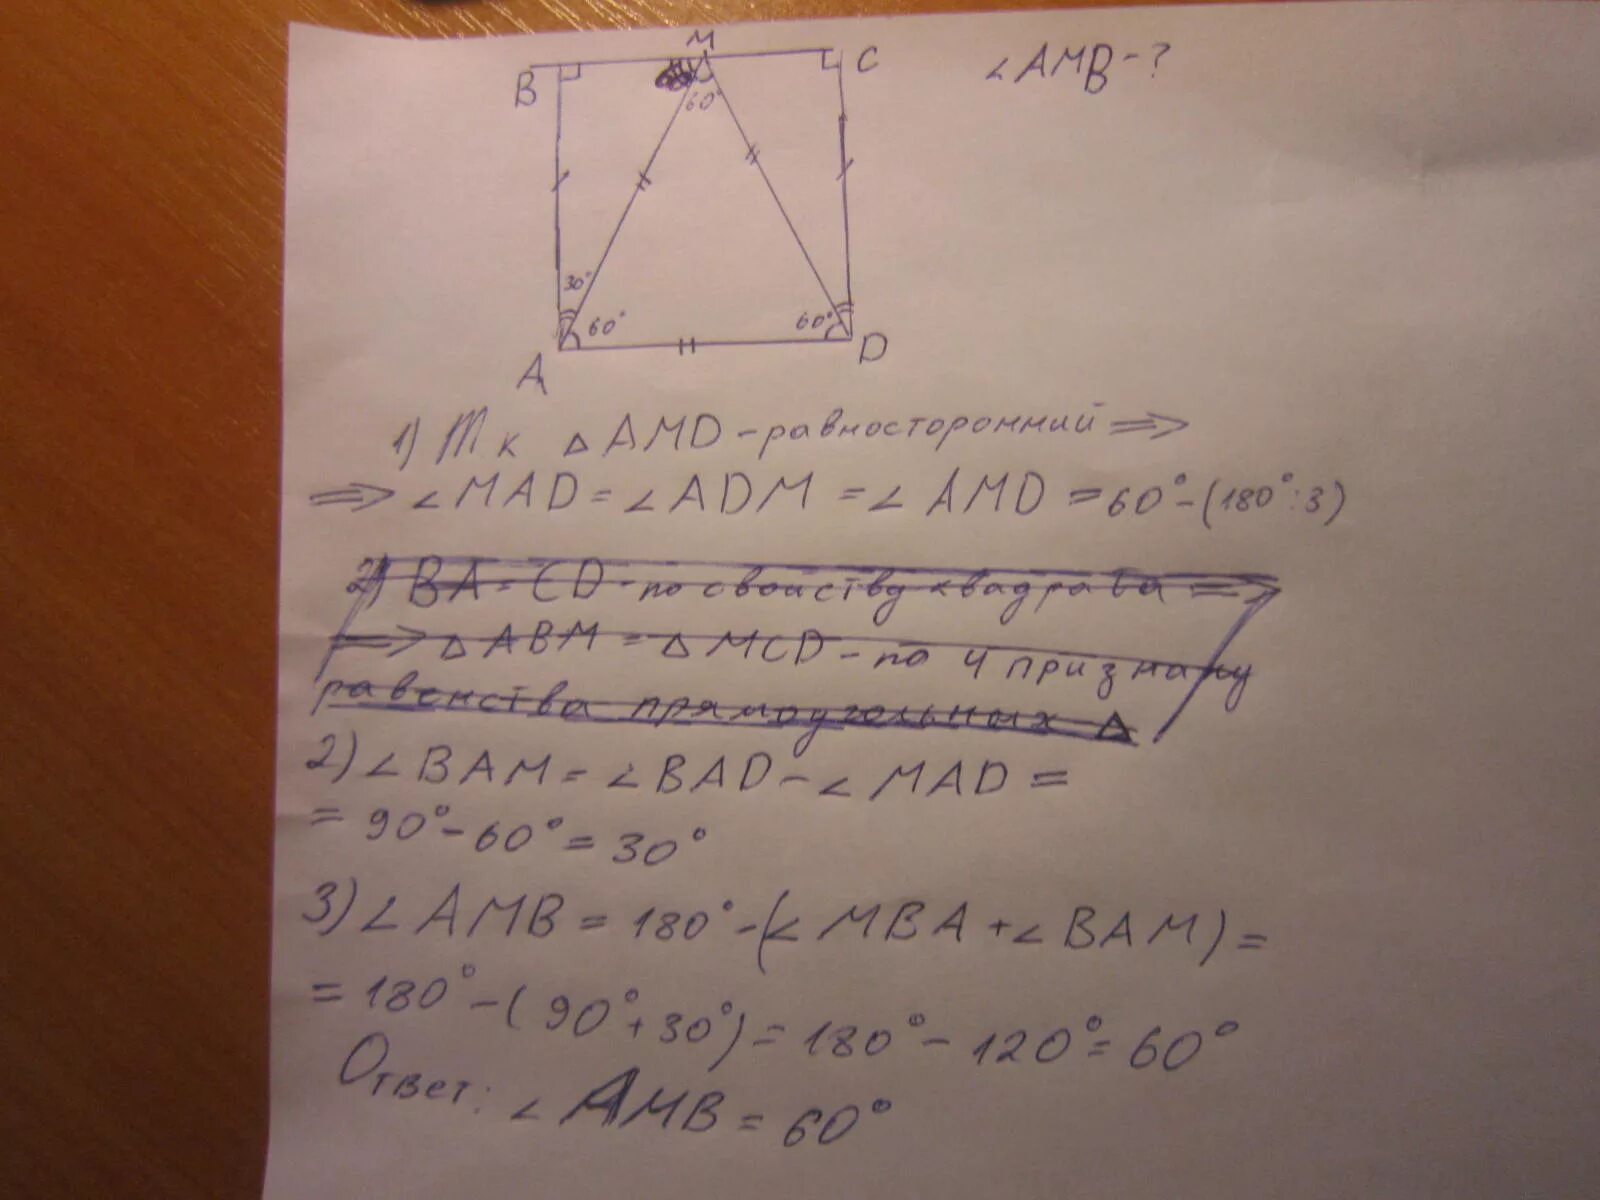 M
B
C
∠AMB - ?
60°
30°
60°
60°
A
D
1) Тк △AMD - равносторонний ⇒
⇒ ∠MAD = ∠ADM = ∠AMD = 60° - (180° : 3)
2) BA = CD - по свойству квадрата ⇒
⇒ △ABM = △MCD - по 4 признаку
равенства прямоугольных △
2) ∠BAM = ∠BAD - ∠MAD =
= 90° - 60° = 30°
3) ∠AMB = 180° - (∠MBA + ∠BAM) =
= 180° - (90° + 30°) = 180° - 120° = 60°
Ответ: ∠AMB = 60°